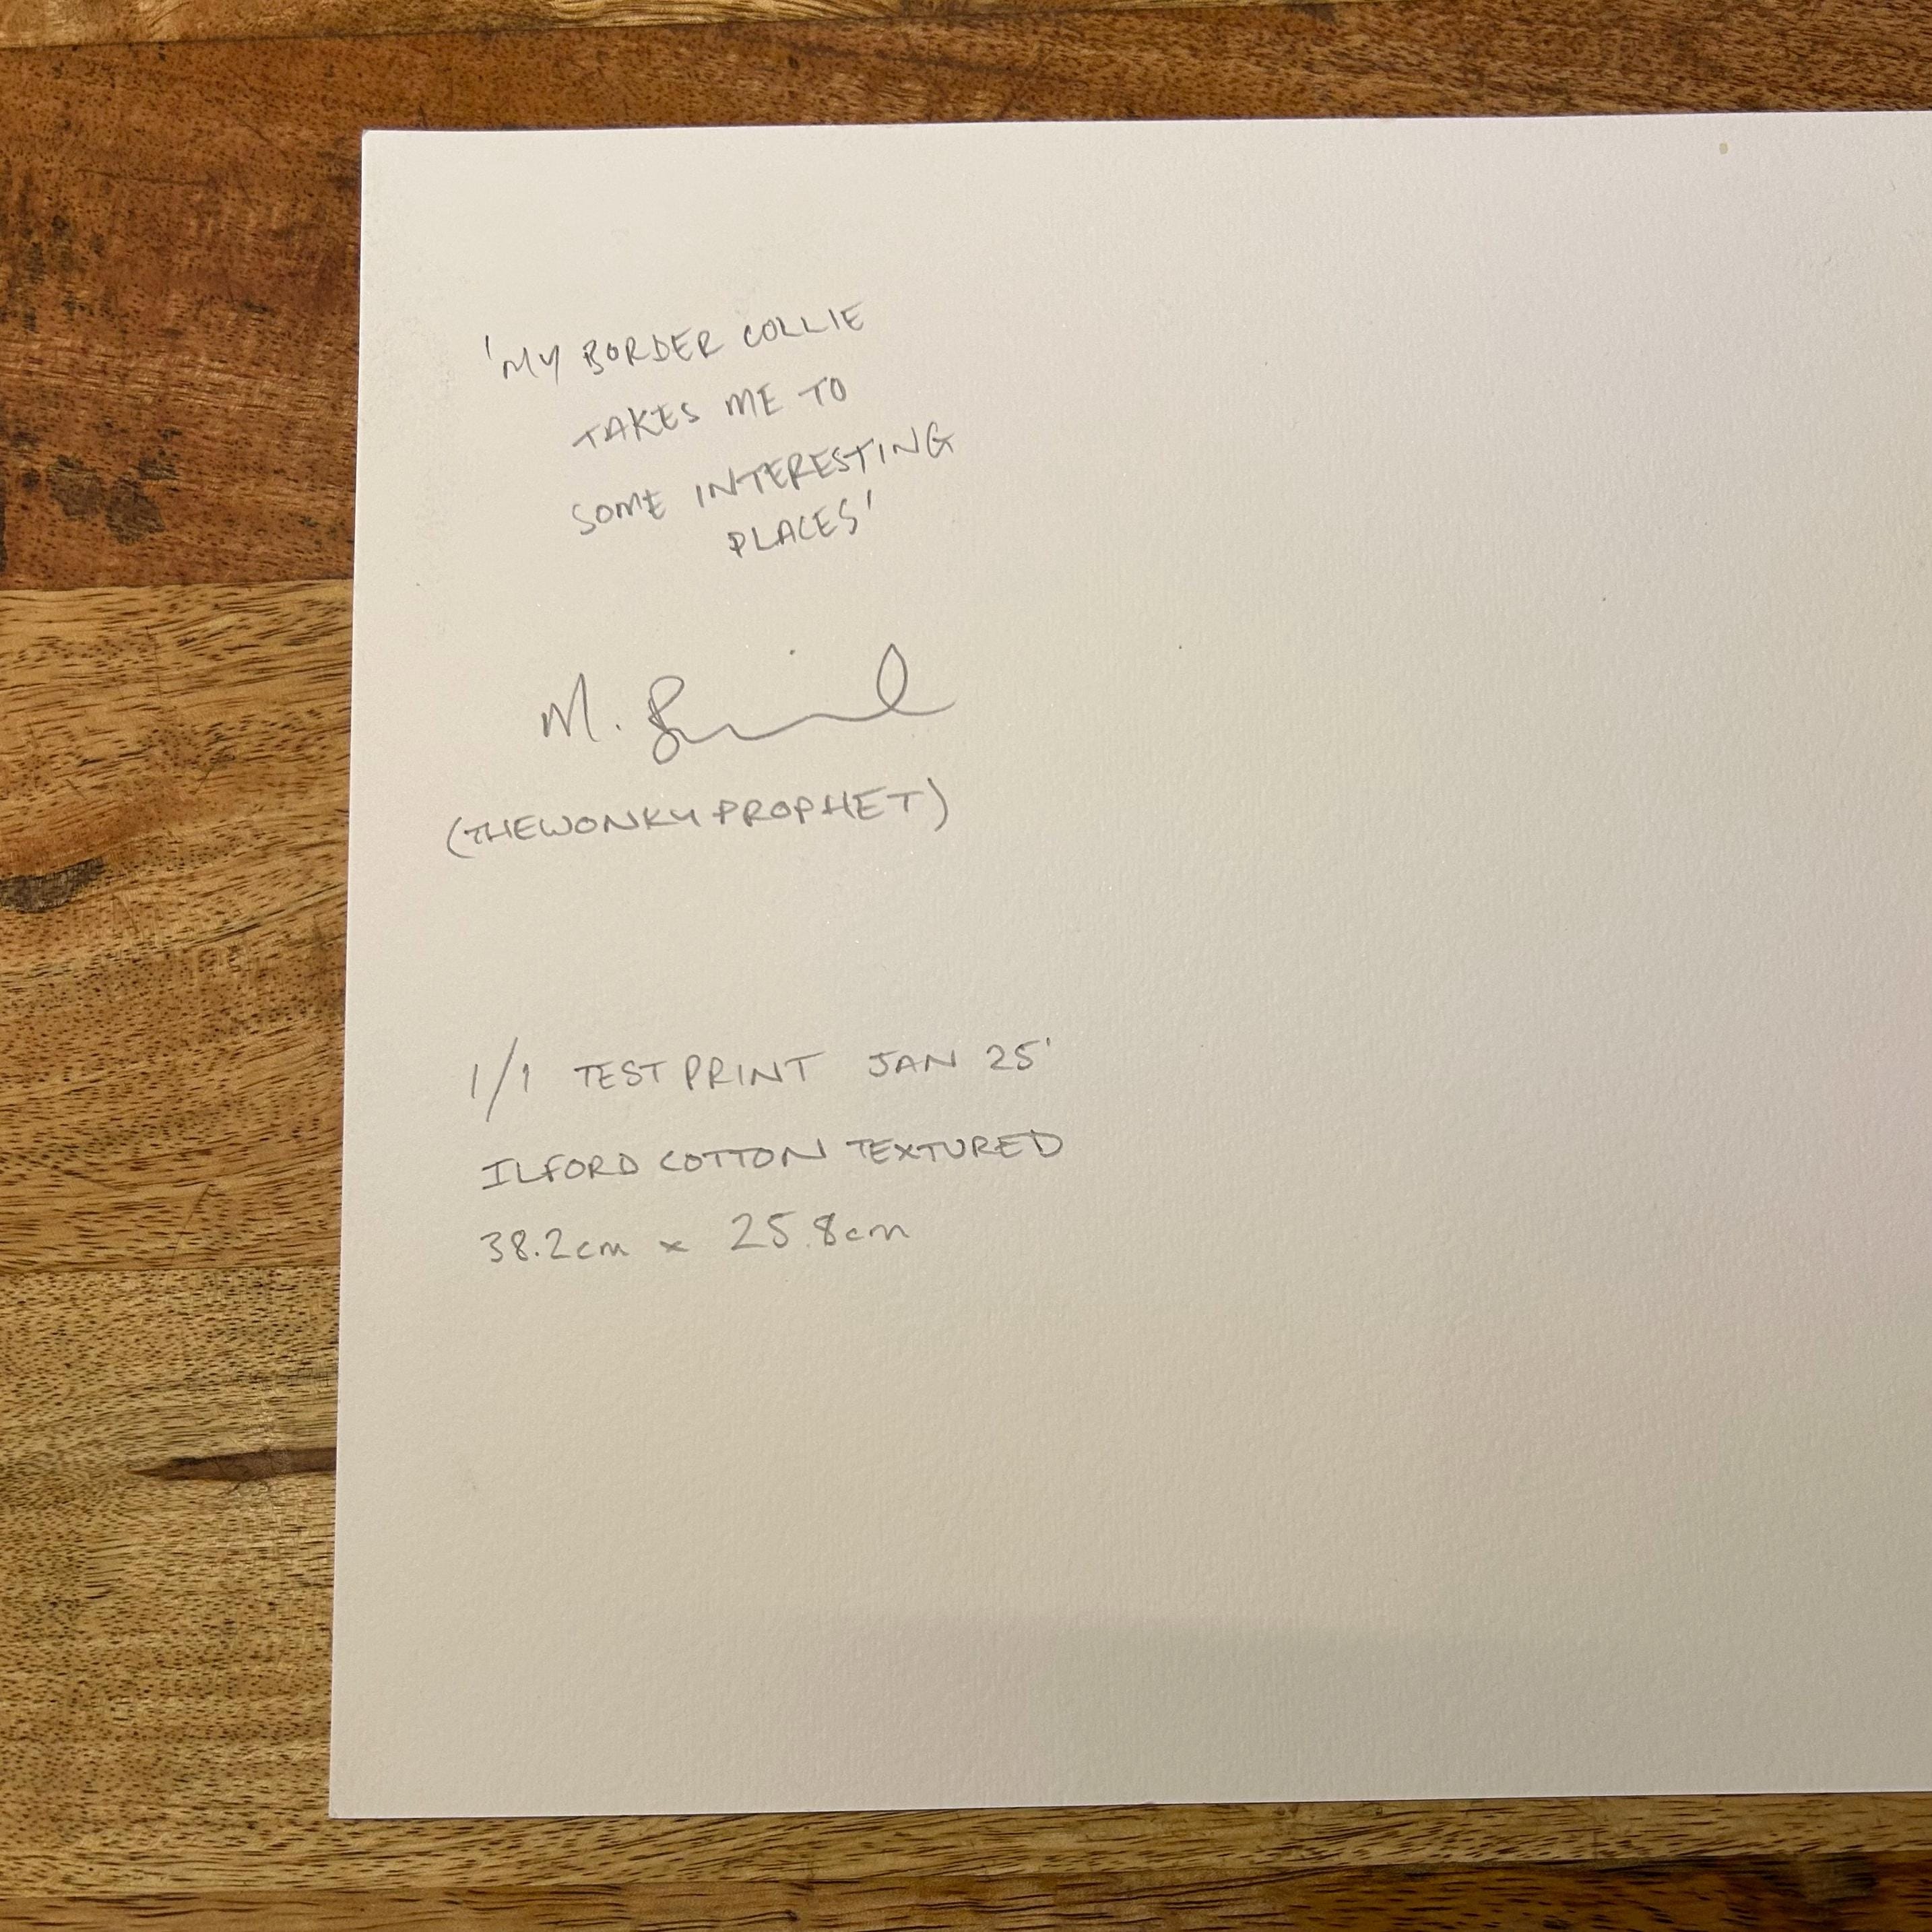 'MY BORDER COLLIE
TAKES ME TO
SOME INTERESTING
PLACES'
M.
(THEWONKYPROPHET)
1/1 TEST PRINT JAN 25'
ILFORD COTTON TEXTURED
38.2cm x 25.8cm